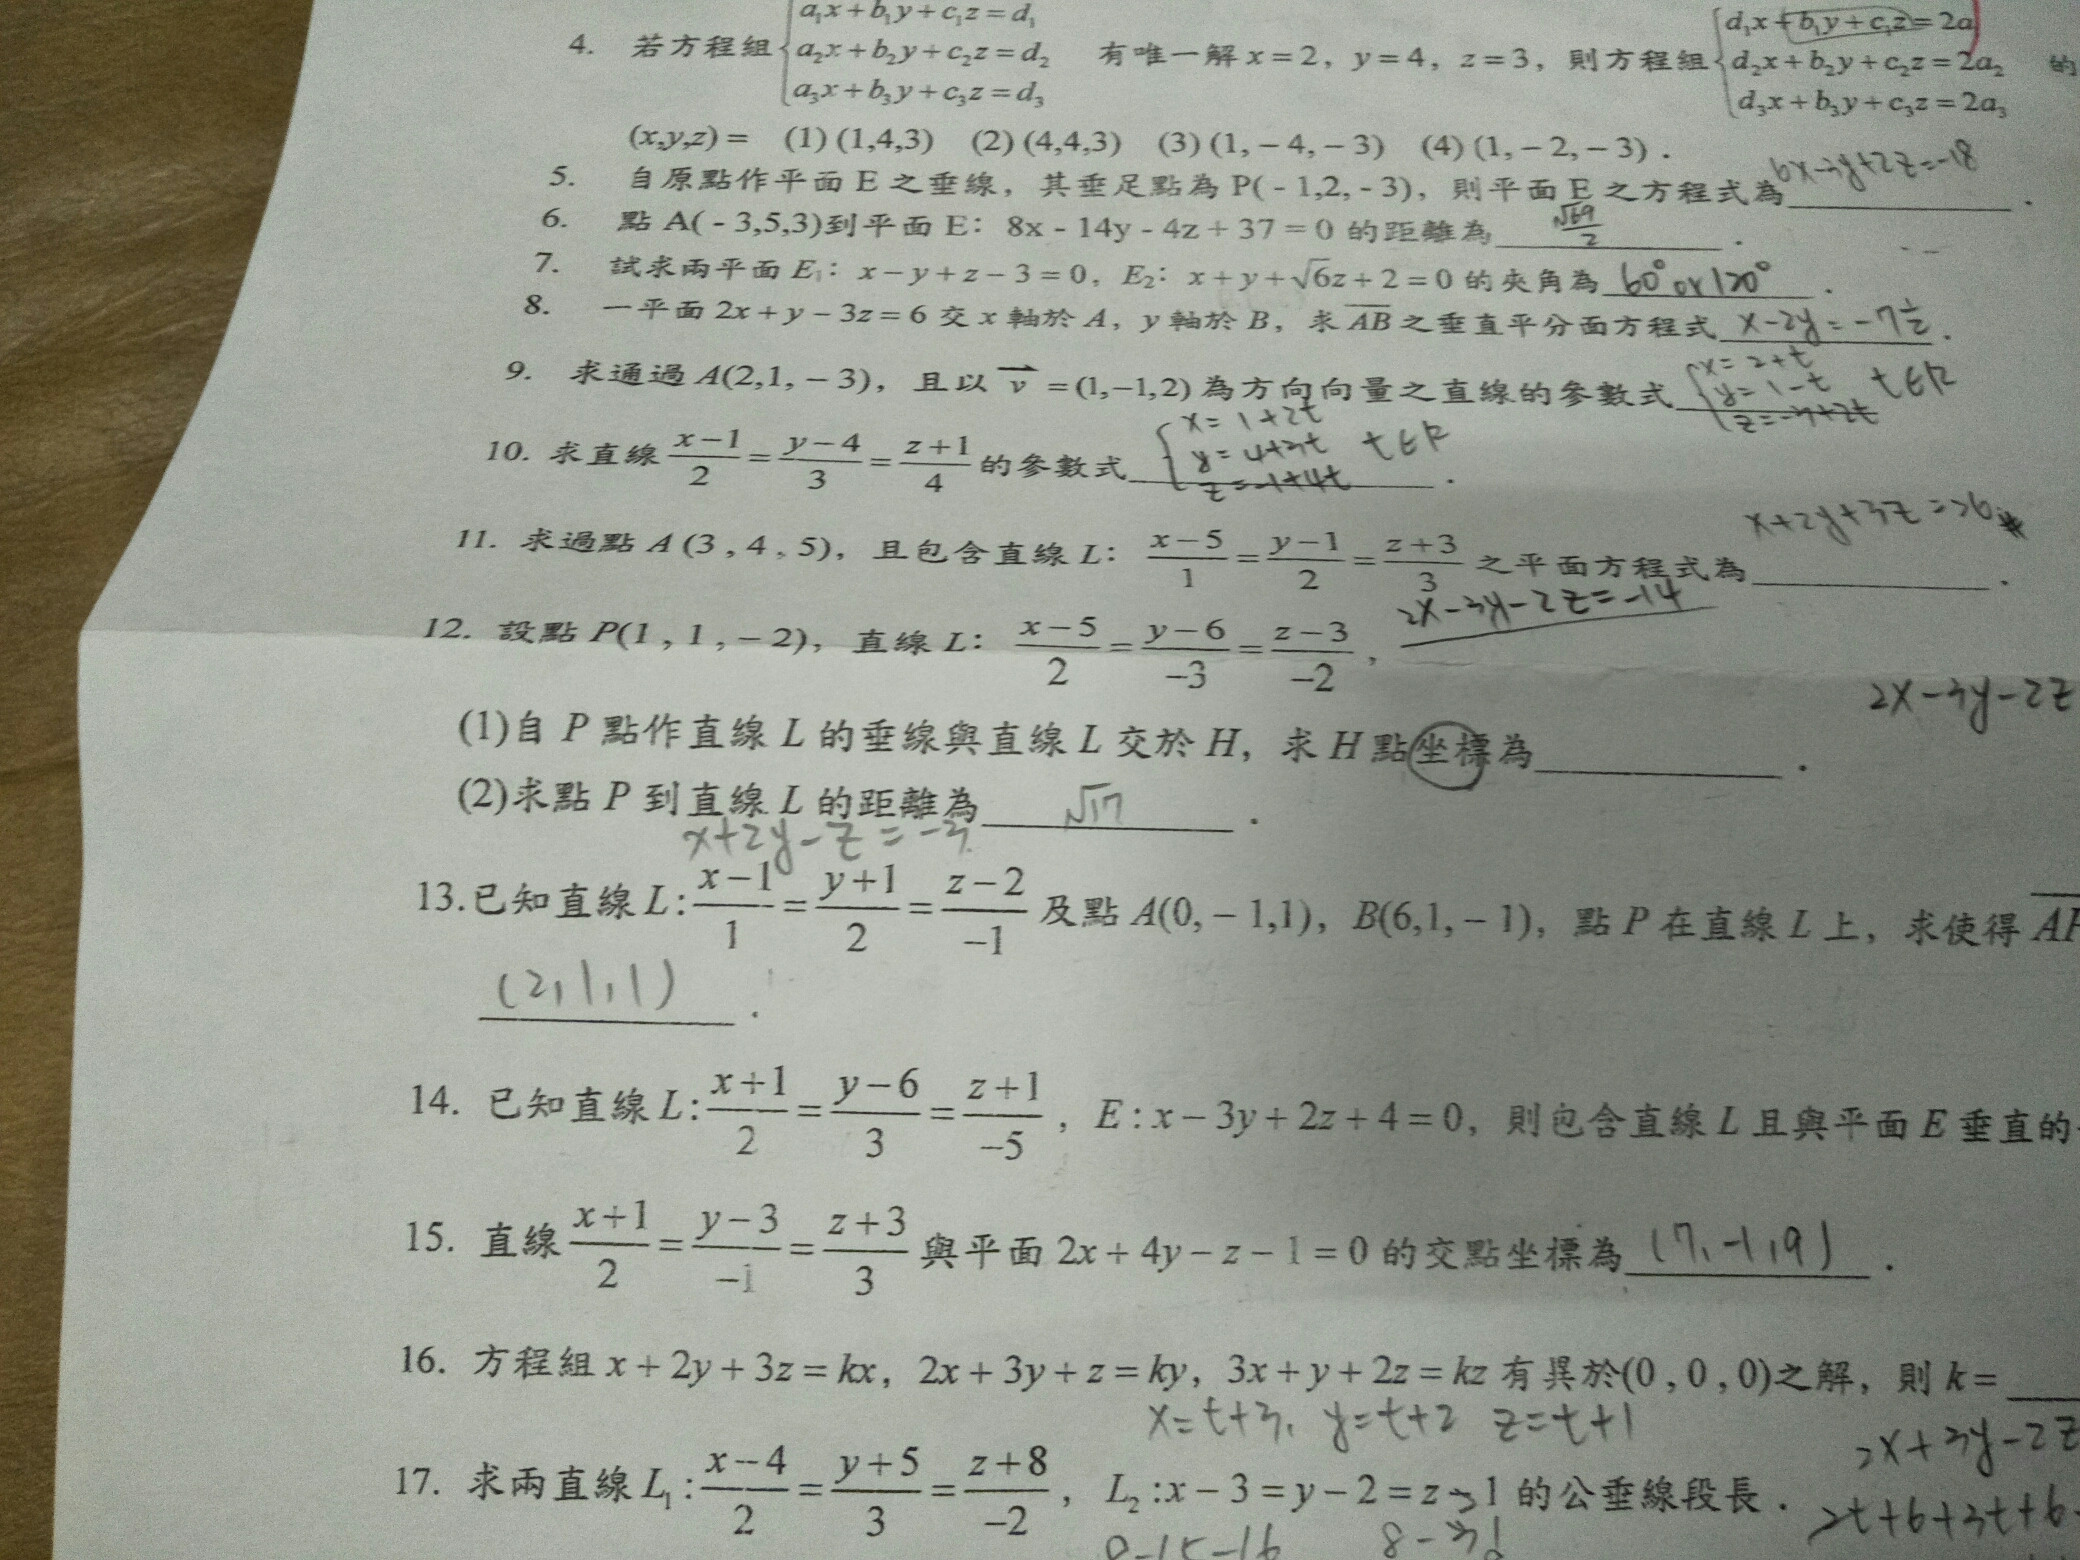 a₁x+b₁y+c₁z=d₁
d₁x+b₁y+c₁z=2a
4. 若方程組 a₂x+b₂y+c₂z=d₂ 有唯一解x=2, y=4, z=3, 則方程組 d₂x+b₂y+c₂z=2a₂ 的
a₃x+b₃y+c₃z=d₃
d₃x+b₃y+c₃z=2a₃
(x,y,z)= (1)(1,4,3) (2)(4,4,3) (3)(1,-4,-3) (4)(1,-2,-3).
6x-3y+2z=-18
5. 自原點作平面E之垂線, 其垂足點為P(-1,2,-3), 則平面E之方程式為________.
6. 點A(-3,5,3)到平面E: 8x-14y-4z+37=0的距離為 √69/2 .
7. 試求兩平面E₁: x-y+z-3=0, E₂: x+y+√6z+2=0的夾角為 60° or 120° .
8. 一平面2x+y-3z=6交x軸於A, y軸於B, 求AB之垂直平分面方程式 x-2y=-7½ .
9. 求通過A(2,1,-3), 且以v=(1,-1,2)為方向向量之直線的參數式 x=2+t
y=1-t t∈R
z=-3+2t
10. 求直線(x-1)/2=(y-4)/3=(z+1)/4的參數式 x=1+2t
y=4+3t t∈R
z=-1+4t .
x+2y+3z=26
11. 求過點A(3,4,5), 且包含直線L: (x-5)/1=(y-1)/2=(z+3)/3之平面方程式為________.
2x-3y-2z=-14
12. 設點P(1,1,-2), 直線L: (x-5)/2=(y-6)/-3=(z-3)/-2,
2x-3y-2z
(1)自P點作直線L的垂線與直線L交於H, 求H點坐標為________.
(2)求點P到直線L的距離為 √17 .
x+2y-z=-3
13.已知直線L:(x-1)/1=(y+1)/2=(z-2)/-1及點A(0,-1,1), B(6,1,-1), 點P在直線L上, 求使得AP
(2,1,1) .
14. 已知直線L:(x+1)/2=(y-6)/3=(z+1)/-5, E:x-3y+2z+4=0, 則包含直線L且與平面E垂直的
15. 直線(x+1)/2=(y-3)/-1=(z+3)/3與平面2x+4y-z-1=0的交點坐標為 (7,-1,9) .
16. 方程組x+2y+3z=kx, 2x+3y+z=ky, 3x+y+2z=kz有異於(0,0,0)之解, 則k=____
x=t+3, y=t+2 z=t+1
2x+3y-2z
17. 求兩直線L₁:(x-4)/2=(y+5)/3=(z+8)/-2, L₂:x-3=y-2=z-1的公垂線段長.
2t+6+3t+6